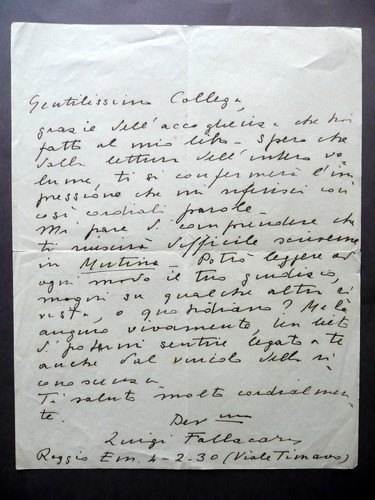 Gentilissimo Collega,
grazie dell'accoglienza che hai
fatto al mio libro. Spero che
dalla lettura dell'intero vo
lume, ti si confermerà l'im
pressione che mi riferisci con
così cordiali parole.
Mi pare di comprendere che
ti riuscirà difficile scriverne
in Mutina. Potrò leggere ad
ogni modo il tuo giudizio,
magari su qualche altra ri
vista, o quotidiano? Me lo
auguro vivamente, ben lieto
di potermi sentire legato a te
anche dal vincolo della ri
conoscenza.
Ti saluto molto cordialmen
te.
Dev mo
Luigi Fallacara
Reggio Em. 4-2-30 (Viale Timavo)